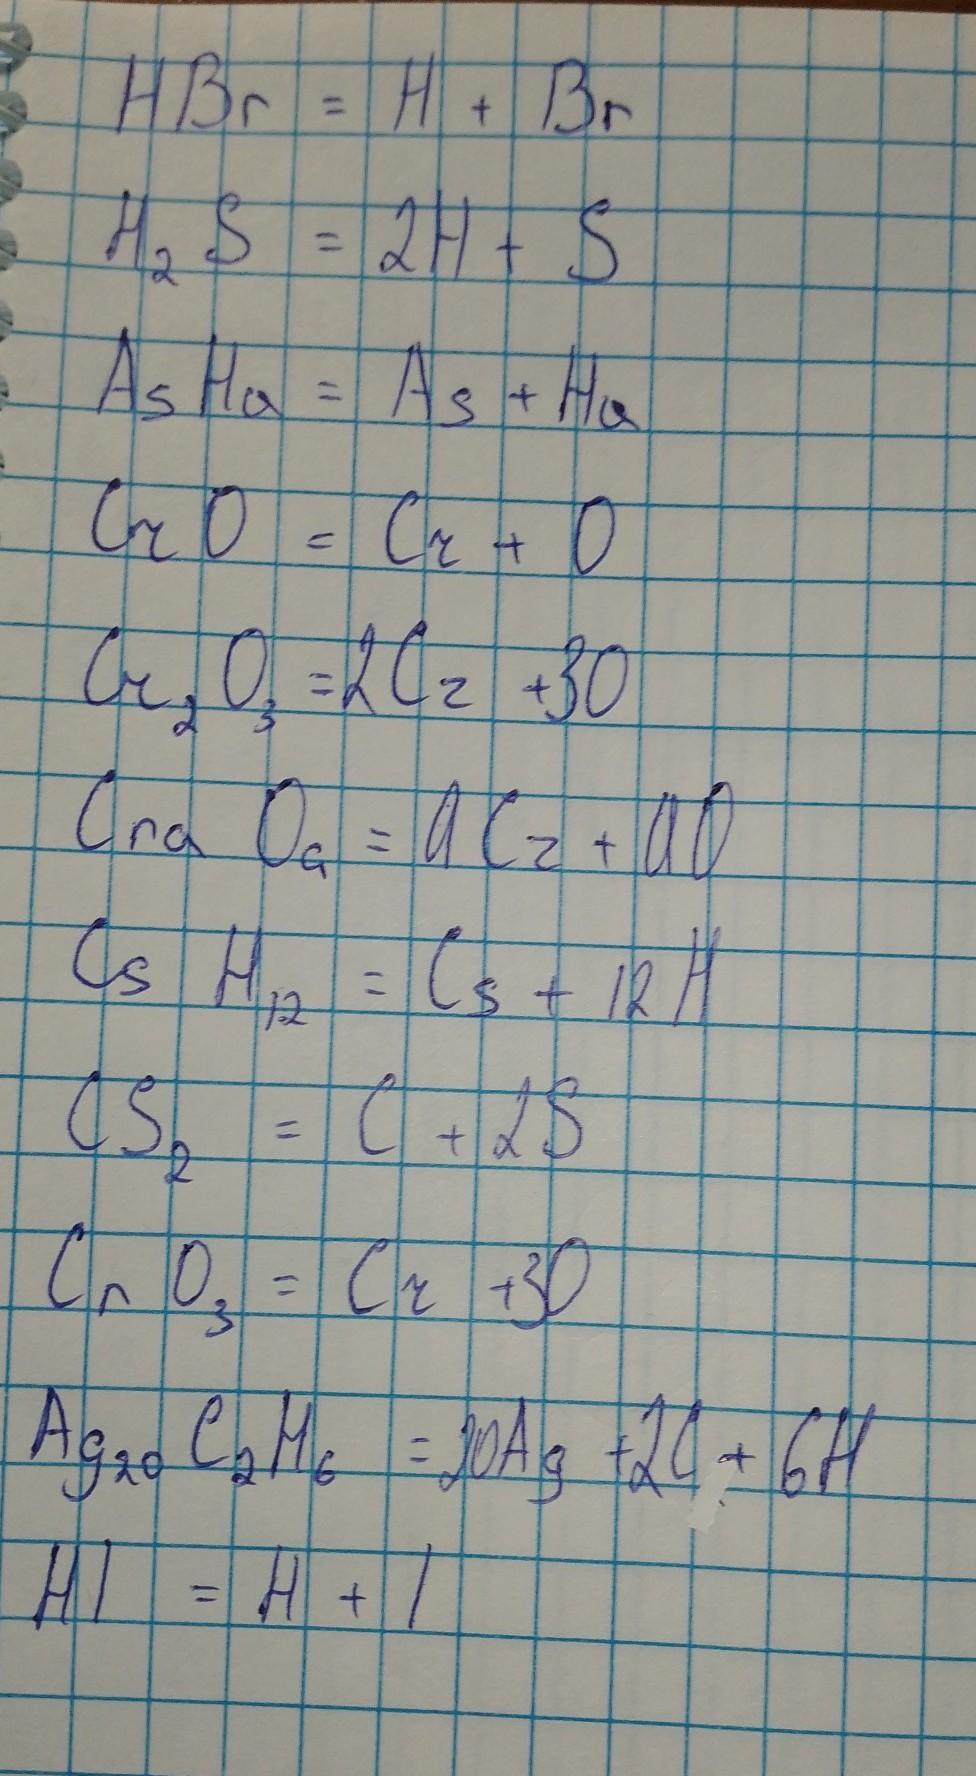 HBr = H + Br
H₂S = 2H + S
AsHa = As + Ha
CrO = Cr + O
Cr₂O₃ = 2Cr + 3O
Cra Oa = aCr + aO
Cs H₁₂ = Cs + 12H
CS₂ = C + 2S
CrO₃ = Cr + 3O
Ag₂₀ C₂H₆ = 20Ag + 2C + 6H
HI = H + I